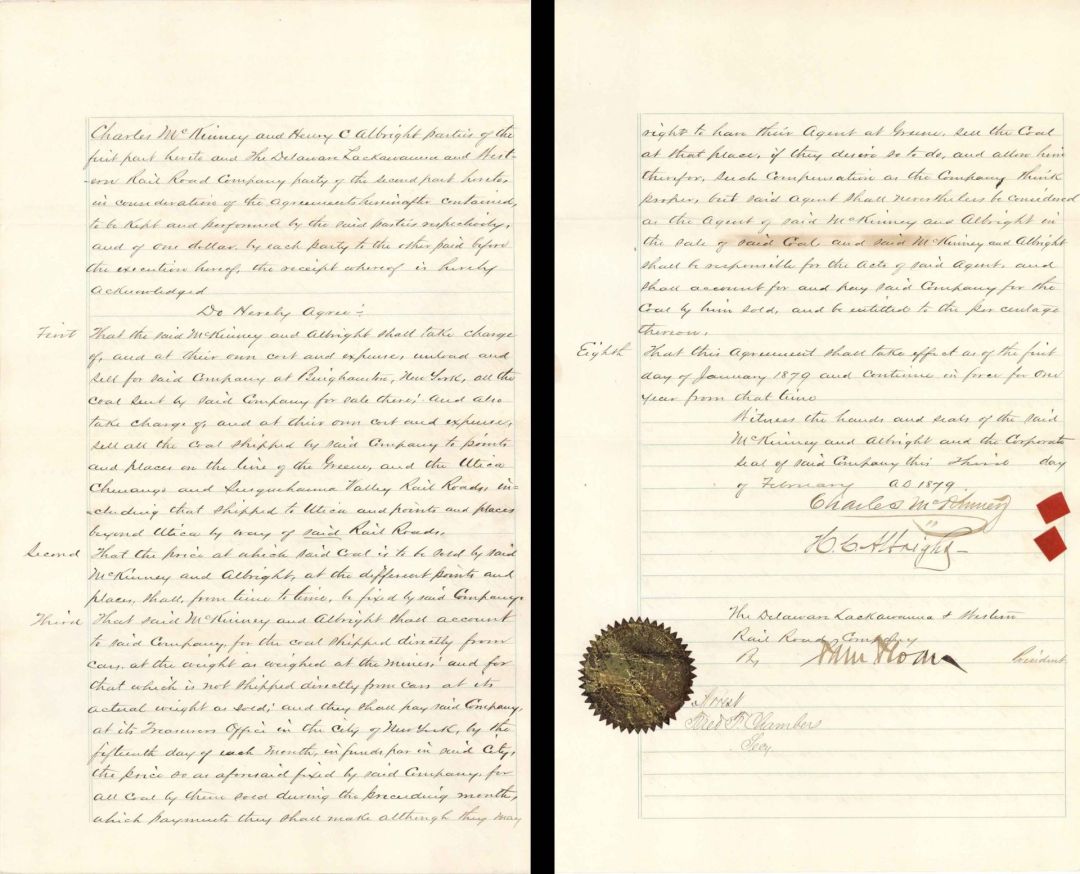 Charles McKinney and Henry C Albright parties of the
first part hereto and The Delaware Lackawanna and West-
ern Rail Road Company party of the second part hereto,
in consideration of the Agreements hereinafter contained,
to be Kept and performed by the said parties respectively,
and of one dollar, by each party to the other paid before
the execution hereof, the receipt whereof is hereby
acknowledged
Do Hereby Agree:-
First That the said McKinney and Albright shall take charge
of, and at their own cost and expense, unload and
sell for said Company at Binghamton, New York, all the
coal sent by said Company for sale there; And also
take charge of, and at their own cost and expense,
sell all the Coal shipped by said Company to points
and places on the line of the Greene, and the Utica
Chenango and Susquehanna Valley Rail Roads, in-
cluding that shipped to Utica and points and places
beyond Utica by way of said Rail Roads.
Second That the price at which said Coal is to be sold by said
McKinney and Albright, at the different points and
places, shall, from time to time, be fixed by said Company.
Third That said McKinney and Albright shall account
to said Company, for the coal shipped directly from
cars, at the weight as weighed at the mines; and for
that which is not shipped directly from cars at its
actual weight as sold; and they shall pay said Company,
at its Treasurers Office in the City of New York, by the
fifteenth day of each month, in funds, par in said City,
the price so as aforesaid fixed by said Company, for
all Coal by them sold during the preceeding month,
which payments they shall make although they may
right to have their Agent at Greene, sell the Coal
at that place, if they desire so to do, and allow him
therefor, such Compensation as the Company think
proper, but said Agent shall nevertheless be considered
as the Agent of said McKinney and Albright in
the sale of said Coal and said McKinney and Albright
shall be responsible for the Acts of said Agent, and
shall account for and pay said Company for the
Coal by him sold, and be entitled to the per centage
thereon.
Eighth That this Agreement shall take effect as of the first
day of January 1879 and Continue in force for One
year from that time
Witness the hands and seals of the said
McKinney and Albright and the Corporate
Seal of said Company this Third day
of February AD 1879.
Charles McKinney
H. C. Albright
The Delaware Lackawanna & Western
Rail Road Company
By Sam Sloan President
Attest
Fred F. Chambers
Secy